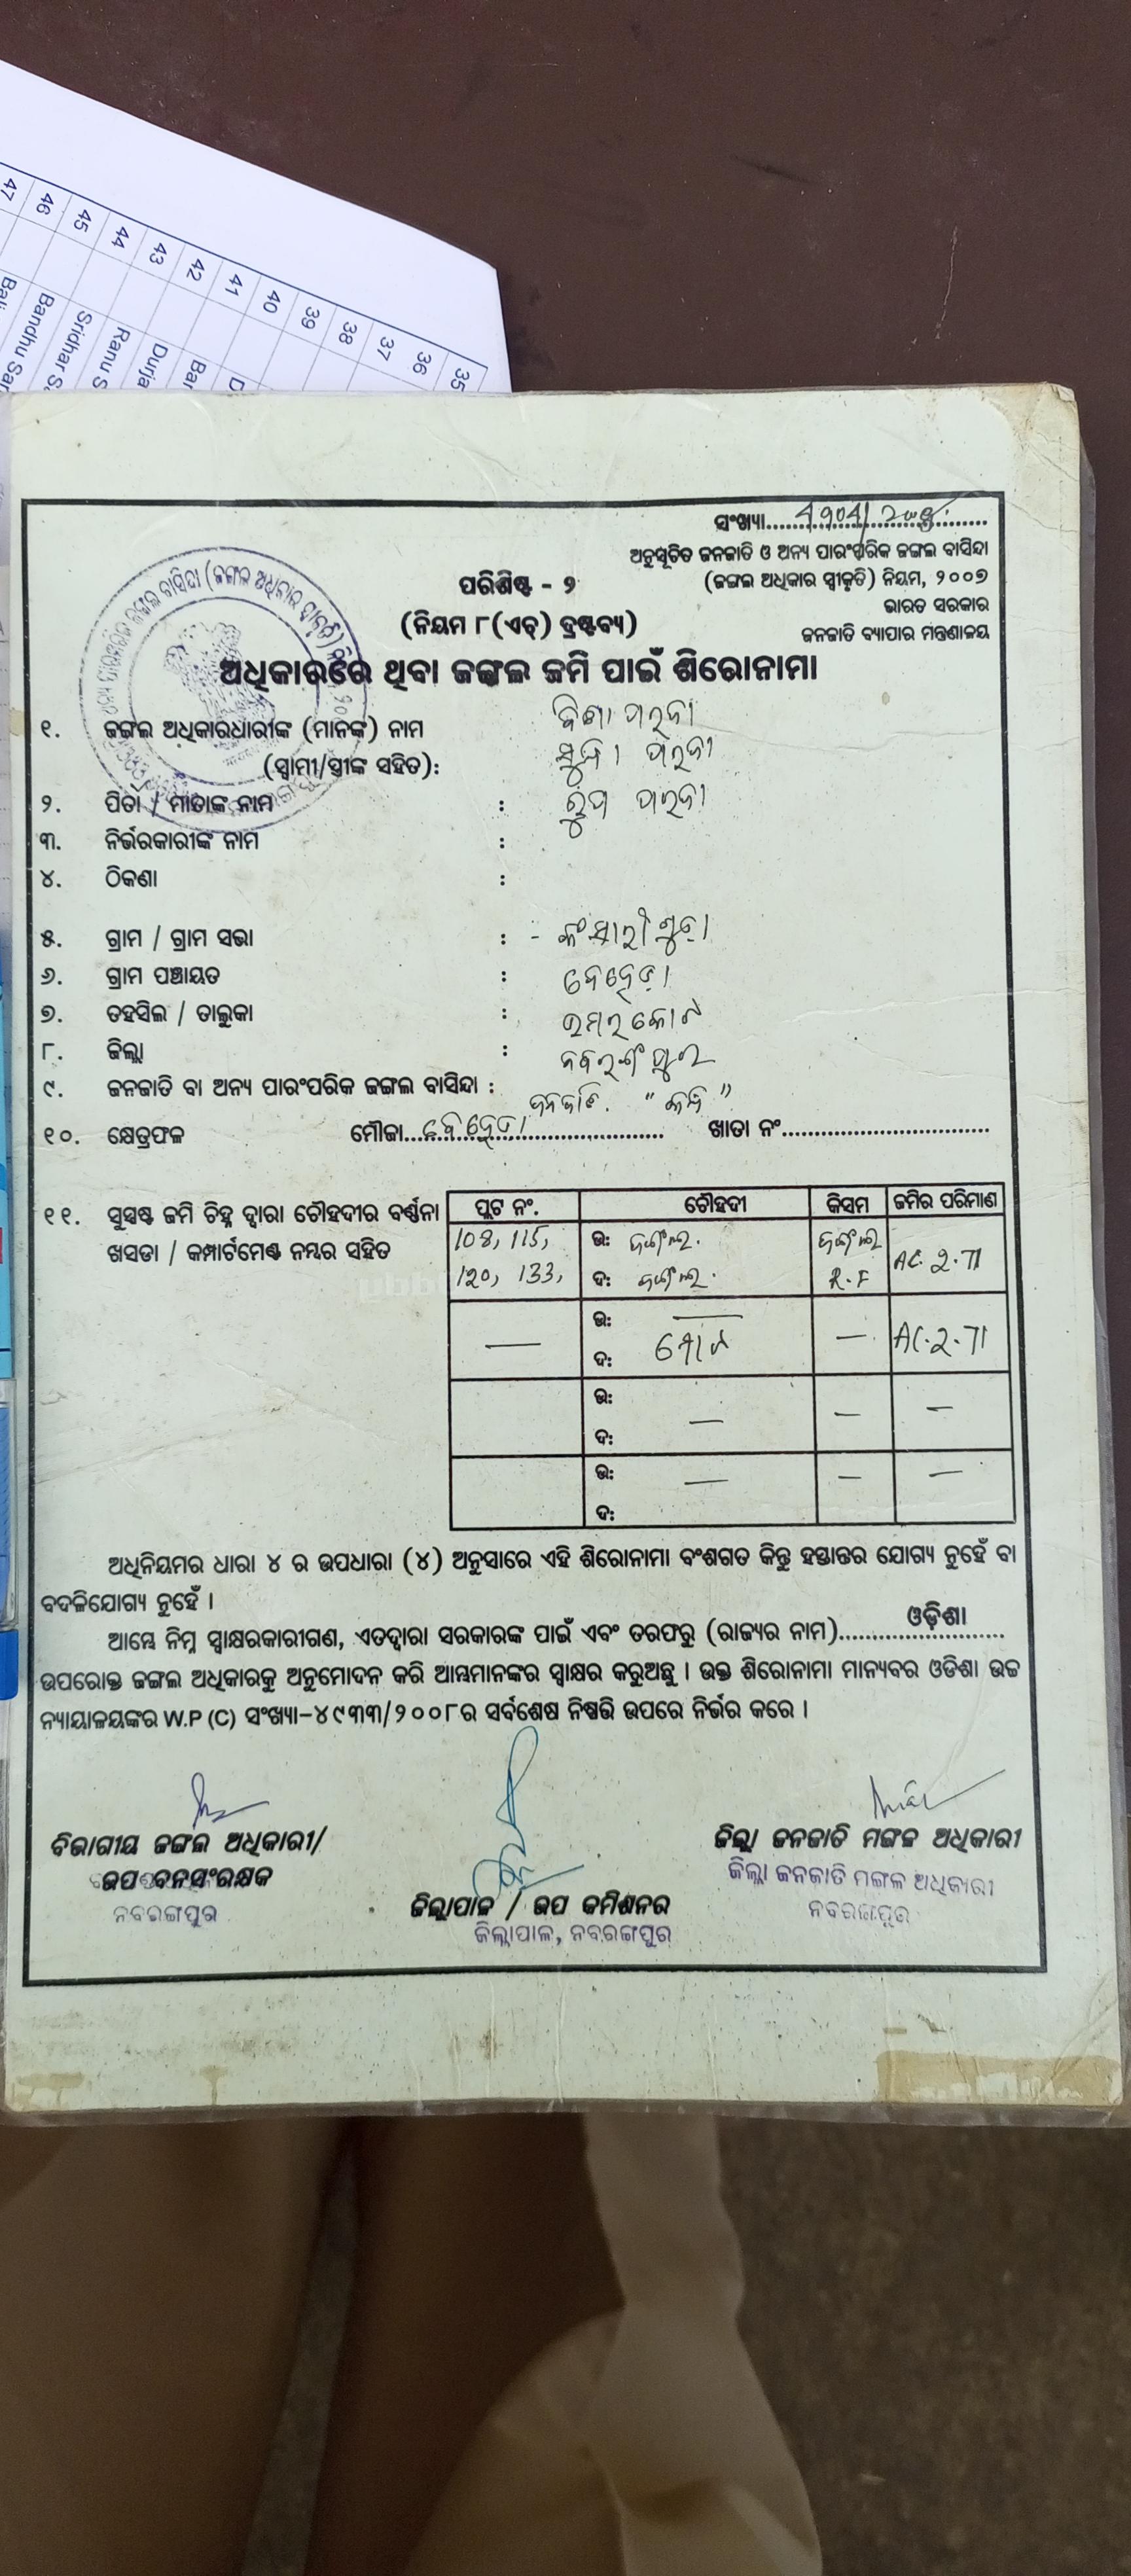 47
46
45
44
43
42
41
40
39
38
37
36
35
Bandhu Sar
Sridhar S
Ranu S
Durja
Bar
D
ସଂଖ୍ୟା
ଅନୁସୂଚିତ ଜନଜାତି ଓ ଅନ୍ୟ ପାରଂପରିକ ଜଙ୍ଗଲ ବାସିନ୍ଦା
(ଜଙ୍ଗଲ ଅଧିକାର ସ୍ୱୀକୃତି) ନିୟମ, ୨୦୦୭
ଭାରତ ସରକାର
ଜନଜାତି ବ୍ୟାପାର ମନ୍ତ୍ରଣାଳୟ
ପରିଶିଷ୍ଟ - ୨
(ନିୟମ ୮(ଏଚ୍) ଦ୍ରଷ୍ଟବ୍ୟ)
ଅଧିକାରରେ ଥିବା ଜଙ୍ଗଲ ଜମି ପାଇଁ ଶିରୋନାମା
୧. ଜଙ୍ଗଲ ଅଧିକାରଧାରୀଙ୍କ (ମାନଙ୍କ) ନାମ
(ସ୍ୱାମୀ/ସ୍ତ୍ରୀଙ୍କ ସହିତ):
୨. ପିତା / ମାତାଙ୍କ ନାମ :
୩. ନିର୍ଭରକାରୀଙ୍କ ନାମ :
୪. ଠିକଣା :
୫. ଗ୍ରାମ / ଗ୍ରାମ ସଭା : - କଂସାରୀଗୁଡ଼ା
୬. ଗ୍ରାମ ପଞ୍ଚାୟତ : ବେହେଡ଼ା
୭. ତହସିଲ / ତାଲୁକା : ଉମରକୋଟ
୮. ଜିଲ୍ଲା : ନବରଙ୍ଗପୁର
୯. ଜନଜାତି ବା ଅନ୍ୟ ପାରଂପରିକ ଜଙ୍ଗଲ ବାସିନ୍ଦା : ଜନଜାତି.
୧୦. କ୍ଷେତ୍ରଫଳ ମୌଜା ବେହେଡା ଖାତା ନଂ
୧୧. ସୁସ୍ପଷ୍ଟ ଜମି ଚିହ୍ନ ଦ୍ୱାରା ଚୌହଦୀର ବର୍ଣ୍ଣନା
ଖସଡା / କମ୍ପାର୍ଟମେଣ୍ଟ ନମ୍ବର ସହିତ
ପ୍ଲଟ ନଂ. ଚୌହଦୀ କିସମ ଜମିର ପରିମାଣ
108, 115, ଉ: ଜଙ୍ଗଲ. ଜଙ୍ଗଲ AC. 2.71
120, 133, ଦ: ଜଙ୍ଗଲ. R.F
— ଉ: — — AC.2.71
ଦ: ମୋଟ
ଉ: — — —
ଦ:
ଉ: — — —
ଦ:
ଅଧିନିୟମର ଧାରା ୪ ର ଉପଧାରା (୪) ଅନୁସାରେ ଏହି ଶିରୋନାମା ବଂଶଗତ କିନ୍ତୁ ହସ୍ତାନ୍ତର ଯୋଗ୍ୟ ନୁହେଁ ବା
ବଦଳିଯୋଗ୍ୟ ନୁହେଁ ।
ଆମ୍ଭେ ନିମ୍ନ ସ୍ୱାକ୍ଷରକାରୀଗଣ, ଏତଦ୍ୱାରା ସରକାରଙ୍କ ପାଇଁ ଏବଂ ତରଫରୁ (ରାଜ୍ୟର ନାମ) ଓଡ଼ିଶା
ଉପରୋକ୍ତ ଜଙ୍ଗଲ ଅଧିକାରକୁ ଅନୁମୋଦନ କରି ଆମ୍ଭମାନଙ୍କର ସ୍ୱାକ୍ଷର କରୁଅଛୁ । ଉକ୍ତ ଶିରୋନାମା ମାନ୍ୟବର ଓଡିଶା ଉଚ୍ଚ
ନ୍ୟାୟାଳୟଙ୍କର W.P (C) ସଂଖ୍ୟା-୪୯୩୩/୨୦୦୮ର ସର୍ବଶେଷ ନିଷ୍ପତ୍ତି ଉପରେ ନିର୍ଭର କରେ ।
ବିଭାଗୀୟ ଜଙ୍ଗଲ ଅଧିକାରୀ/
ଉପ ବନସଂରକ୍ଷକ
ନବରଙ୍ଗପୁର
ଜିଲ୍ଲାପାଳ / ଉପ କମିଶନର
ଜିଲ୍ଲାପାଳ, ନବରଙ୍ଗପୁର
ଜିଲ୍ଲା ଜନଜାତି ମଙ୍ଗଳ ଅଧିକାରୀ
ଜିଲ୍ଲା ଜନଜାତି ମଙ୍ଗଳ ଅଧିକାରୀ
ନବରଙ୍ଗପୁର